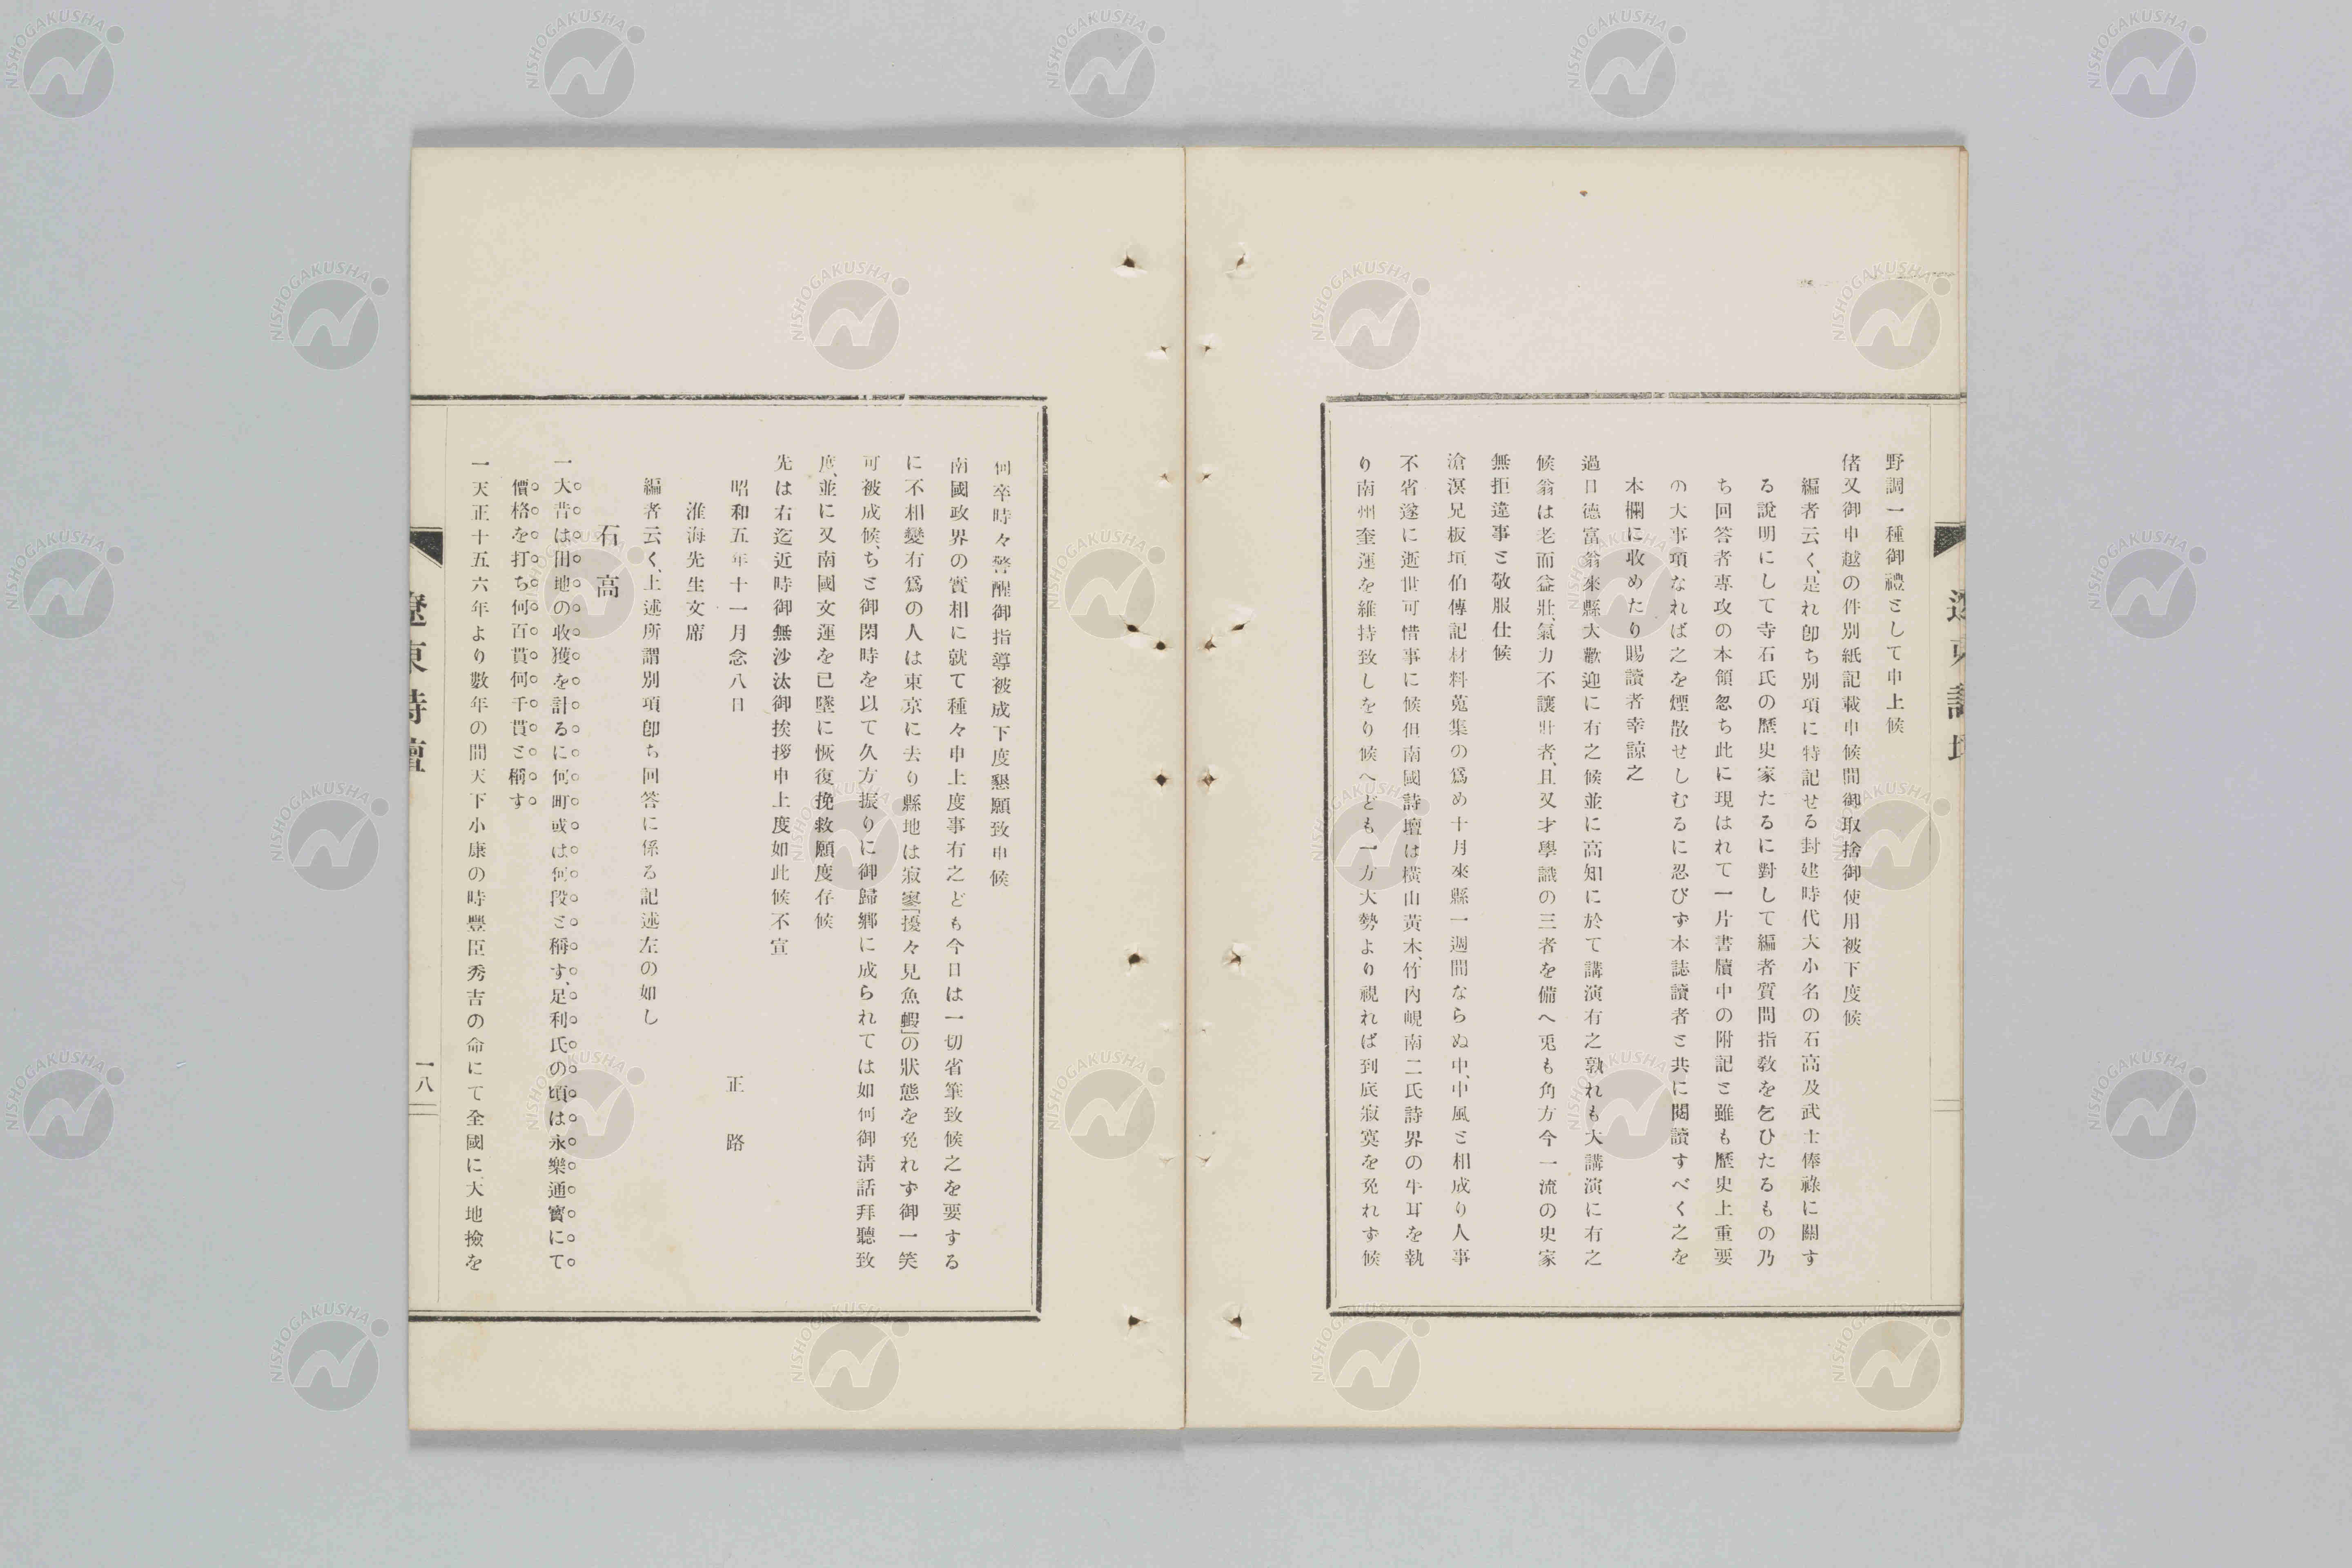 野調一種御禮として申上候
偖又御申越の件別紙記載申候間御取捨御使用被下度候
編者云く、是れ卽ち別項に特記せる封建時代大小名の石高及武士俸祿に關す
る說明にして寺石氏の歷史家たるに對して編者質問指敎を乞ひたるもの乃
ち回答者專攻の本領忽ち此に現はれて一片書牘中の附記と雖も歷史上重要
の大事項なれば之を煙散せしむるに忍びず本誌讀者と共に閱讀すべく之を
本欄に收めたり賜讀者幸諒之
過日德富翁來縣大歡迎に有之候並に高知に於て講演有之孰れも大講演に有之
候翁は老而益壯、氣力不讓壯者、且又才學識の三者を備へ兎も角方今一流の史家
無拒違事と敬服仕候
滄溟兄板垣伯傳記材料蒐集の爲め十月來縣一週間ならぬ中、中風と相成り人事
不省遂に逝世可惜事に候但南國詩壇は橫山黃木、竹內峴南二氏詩界の牛耳を執
り南州奎運を維持致しをり候へども一方大勢より視れば到底寂寞を免れず候
何卒時々警醒御指導被成下度懇願致申候
南國政界の實相に就て種々申上度事有之ども今日は一切省筆致候之を要する
に不相變有爲の人は東京に去り縣地は寂寥「擾々見魚蝦」の狀態を免れず御一笑
可被成候、ちと御閑時を以て久方振りに御歸鄉に成られては如何御淸話拜聽致
度、並に又南國文運を已墜に恢復挽救願度存候
先は右迄近時御無沙汰御挨拶申上度如此候不宣
昭和五年十一月念八日　正路
淮海先生文席
編者云く、上述所謂別項卽ち回答に係る記述左の如し
石高
一大昔は田地の收獲を計るに何町或は何段と稱す、足利氏の頃は永樂通寶にて
價格を打ち何百貫何千貫と稱す
一天正十五六年より數年の間天下小康の時豐臣秀吉の命にて全國に大地撿を
遼東詩壇
一八
NISHOGAKUSHA